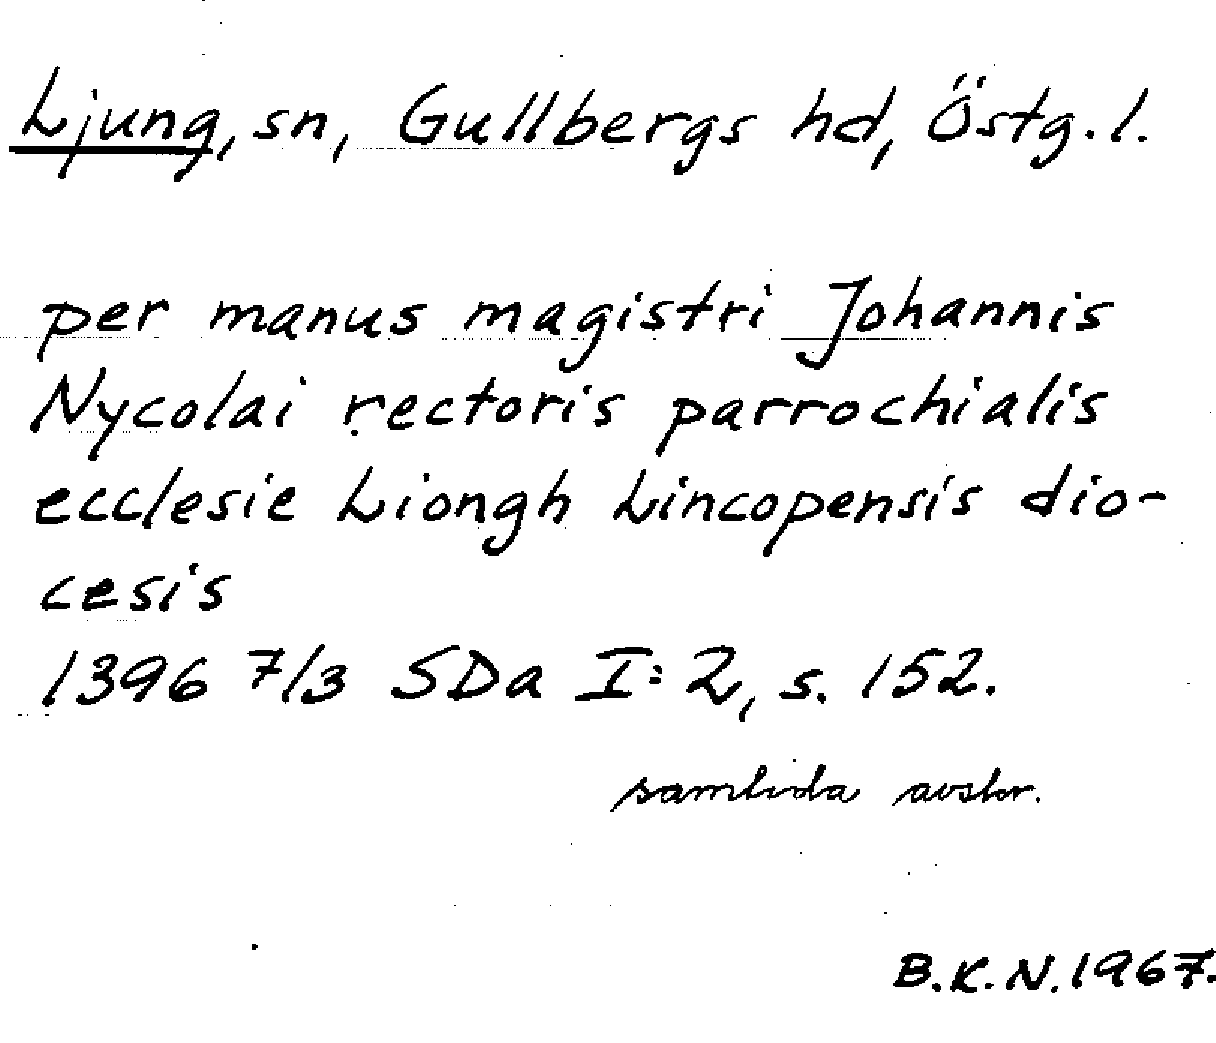 Ljung, sn, Gullbergs hd, Östg. l.
per manus magistri Johannis
Nycolai rectoris parrochialis
ecclesie Liongh Lincopensis dio-
cesis
1396 7/3 SDa I: 2, s. 152.
samtida avskr.
B.K.N. 1967.